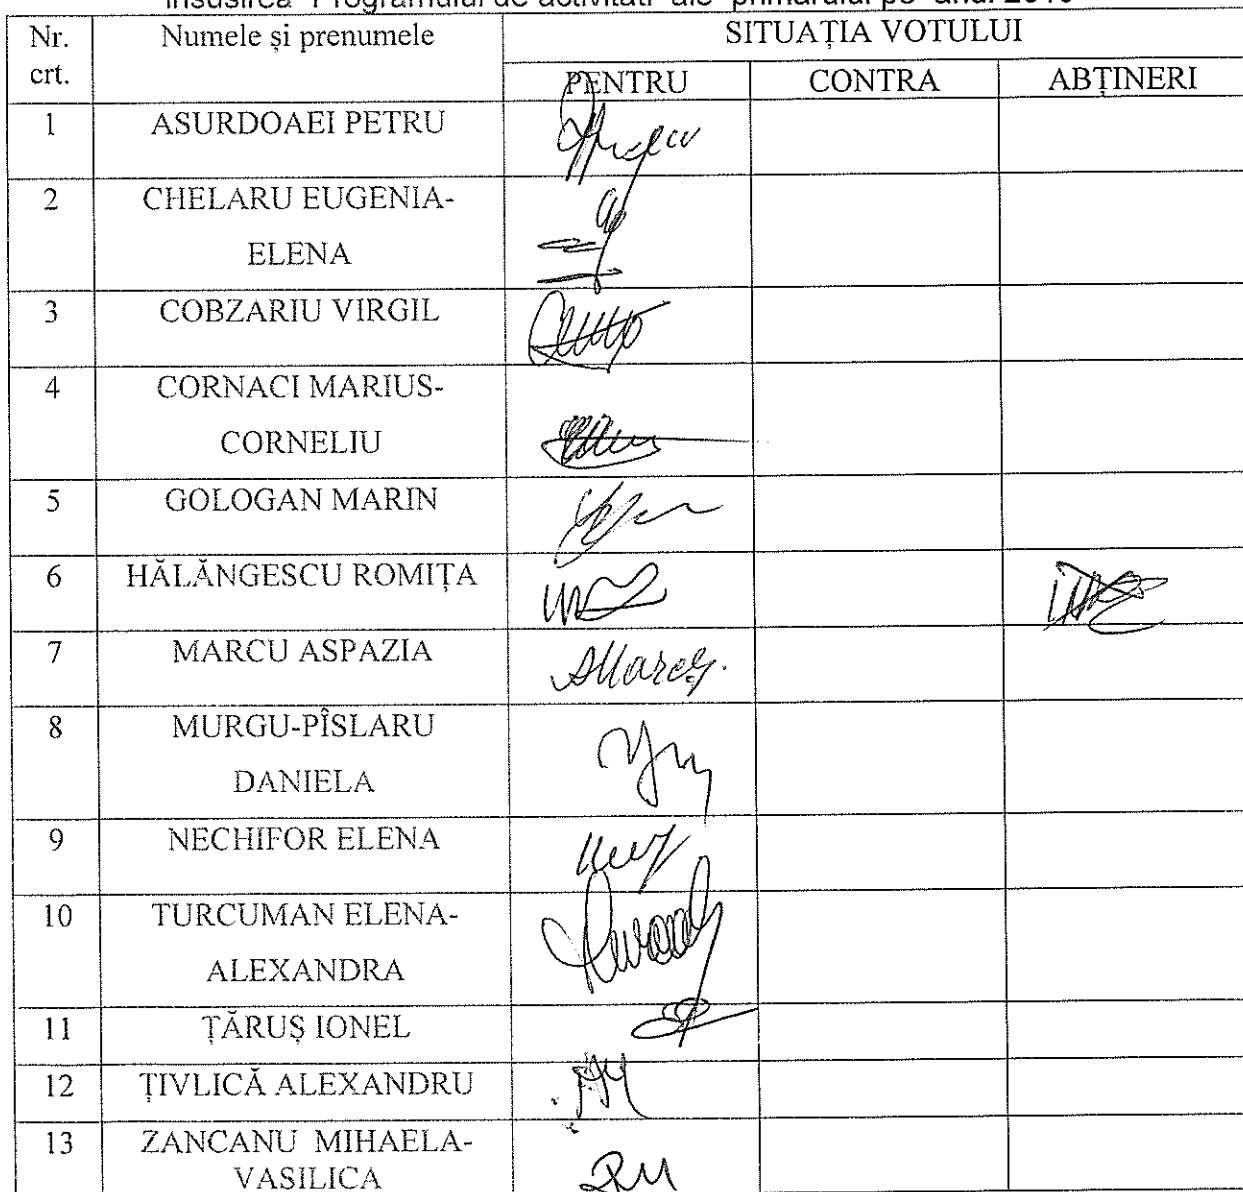 însușirea Programului de activități ale primarului pe anul
Nr. crt. Numele și prenumele SITUAȚIA VOTULUI
PENTRU CONTRA ABȚINERI
1 ASURDOAEI PETRU
2 CHELARU EUGENIA-
ELENA
3 COBZARIU VIRGIL
4 CORNACI MARIUS-
CORNELIU
5 GOLOGAN MARIN
6 HĂLĂNGESCU ROMIȚA
7 MARCU ASPAZIA
8 MURGU-PÎSLARU
DANIELA
9 NECHIFOR ELENA
10 TURCUMAN ELENA-
ALEXANDRA
11 ȚĂRUȘ IONEL
12 ȚIVLICĂ ALEXANDRU
13 ZANCANU MIHAELA-
VASILICA